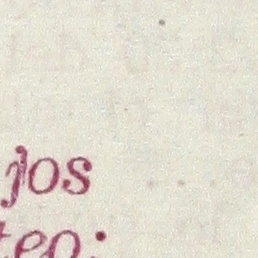 jos
teo: